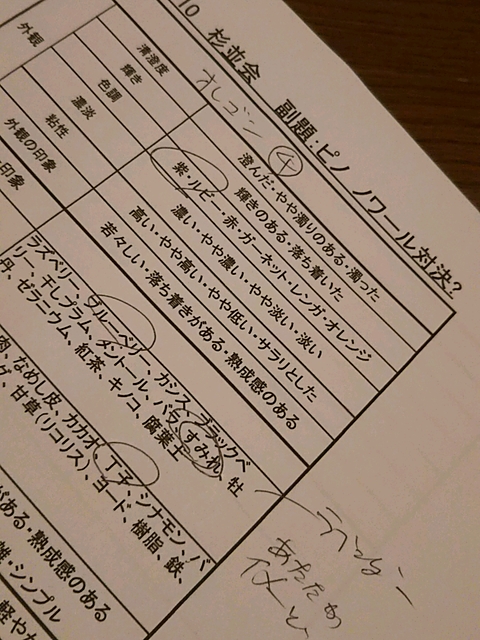 10 杉並会 副題:ピノ ノワール対決?
オレゴン
外観
清澄度
澄んだ・やや濁りのある・濁った
輝き
輝きのある・落ち着いた
色調
紫・ルビー・赤・ガーネット・レンガ・オレンジ
濃淡
濃い・やや濃い・やや淡い・淡い
粘性
高い・やや高い・やや低い・サラリとした
外観の印象
若々しい・落ち着きがある・熟成感のある
印象
ラズベリー、ブルーベリー、カシス、ブラックベ
リー、干しプラム、メントール、バラ、すみれ、牡
丹、ゼラニウム、紅茶、キノコ、腐葉土
肉、なめし皮、カカオ、丁子、シナモン、バ
甘草(リコリス)、ヨード、樹脂、鉄、
がある・熟成感のある
雑・シンプル
軽やか
あたたか